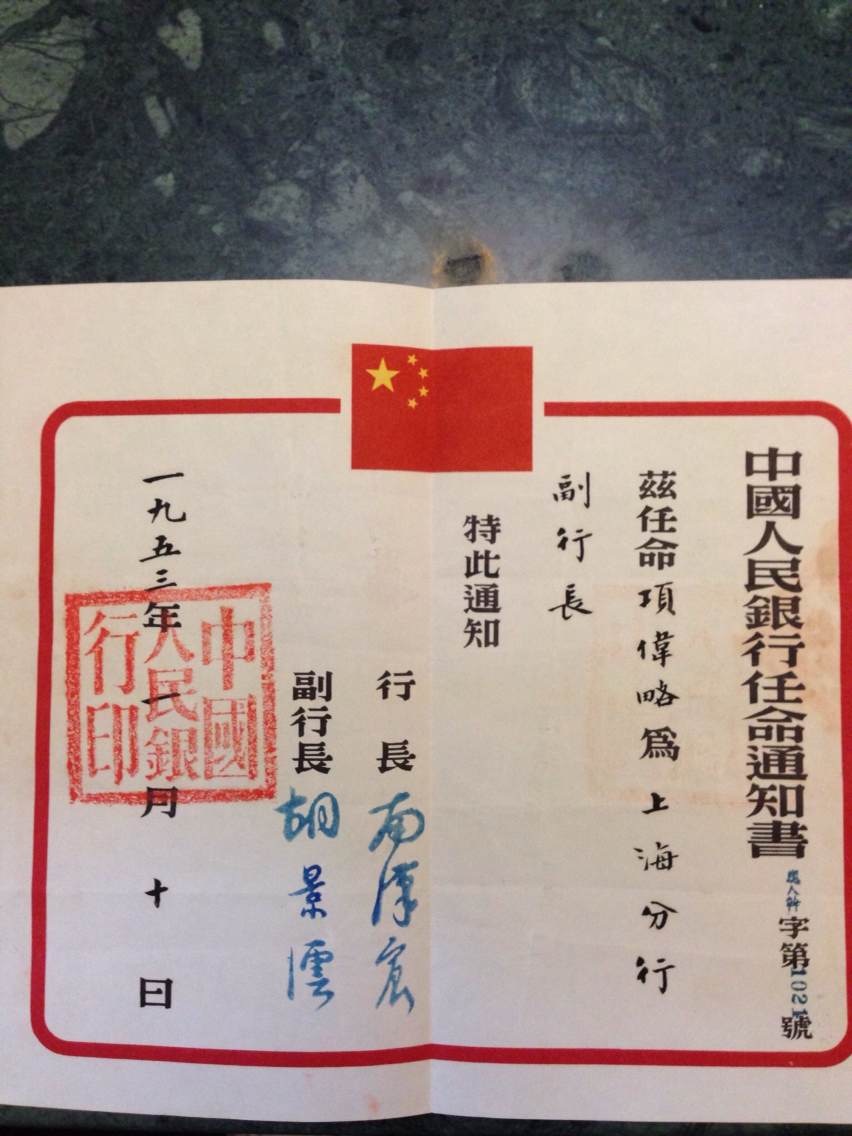 中國人民銀行任命通知書
人幹字第1021號
茲任命項偉略爲上海分行
副行長
特此通知
行長 南漢宸
副行長 胡景澐
一九五三年一月十日
中國人民銀行印